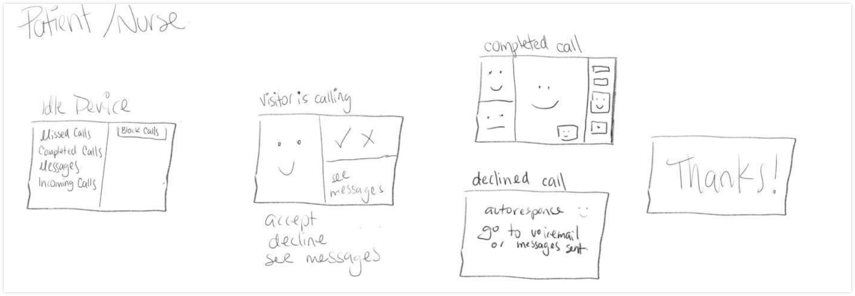 Patient / Nurse
Idle Device
Missed Calls
Completed Calls
Messages
Incoming Calls
Block Calls
visitor is calling
✓ ×
see
messages
accept
decline
see messages
completed call
declined call
autoresponse
go to voicemail
or messages sent
Thanks!